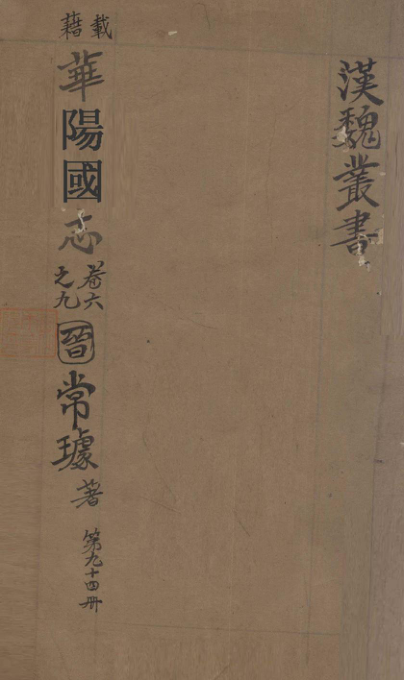 漢魏叢書
載籍
華陽國志
卷六
之九
晉
常璩
著
第九十四冊